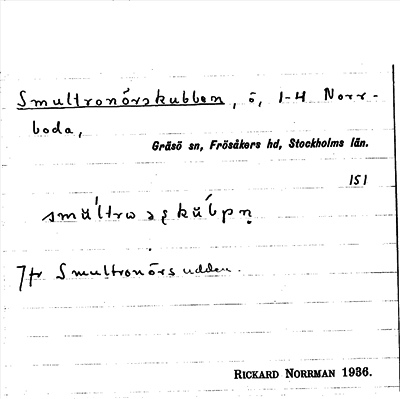 Smultronörskubben, ö, 1-4 Norr-
boda,
Gräsö sn, Frösåkers hd, Stockholms län.
151
Jfr Smultronörsudden.
RICKARD NORRMAN 1936.